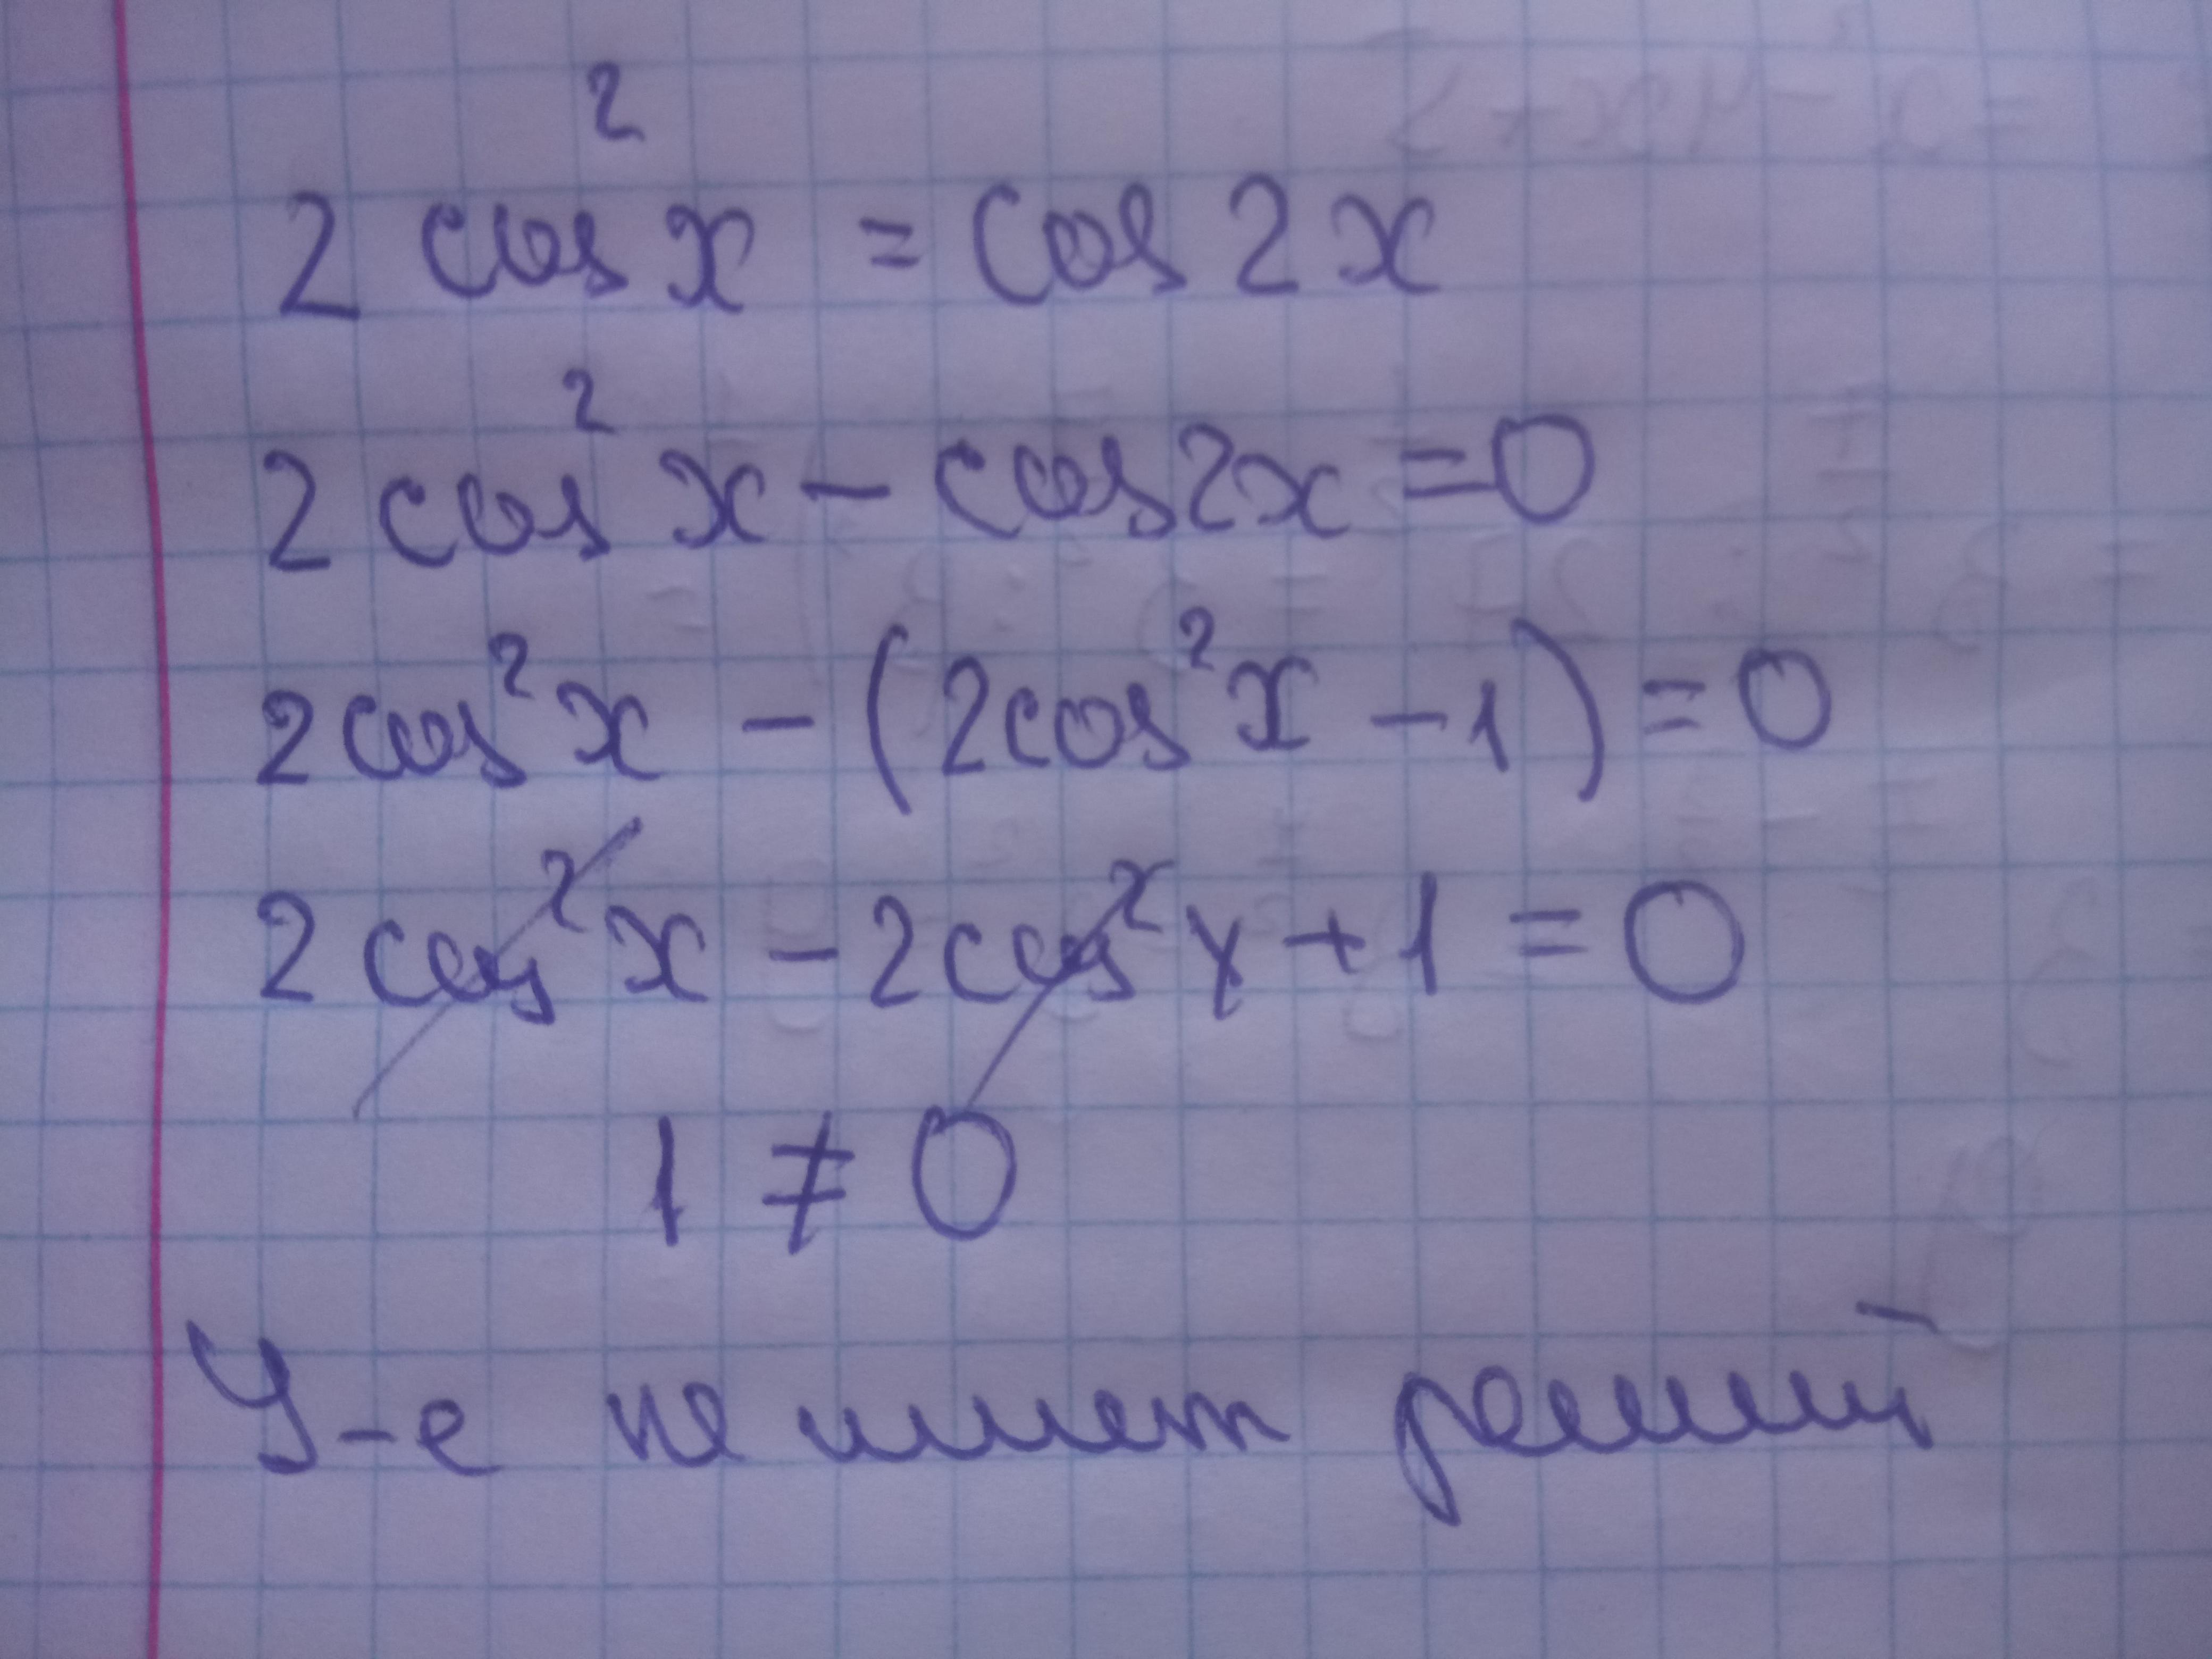 2 cos² x = cos 2x
2 cos² x - cos 2x = 0
2cos² x - (2cos² x - 1) = 0
2 cos² x - 2cos² x + 1 = 0
1 ≠ 0
У-е не имеет реший